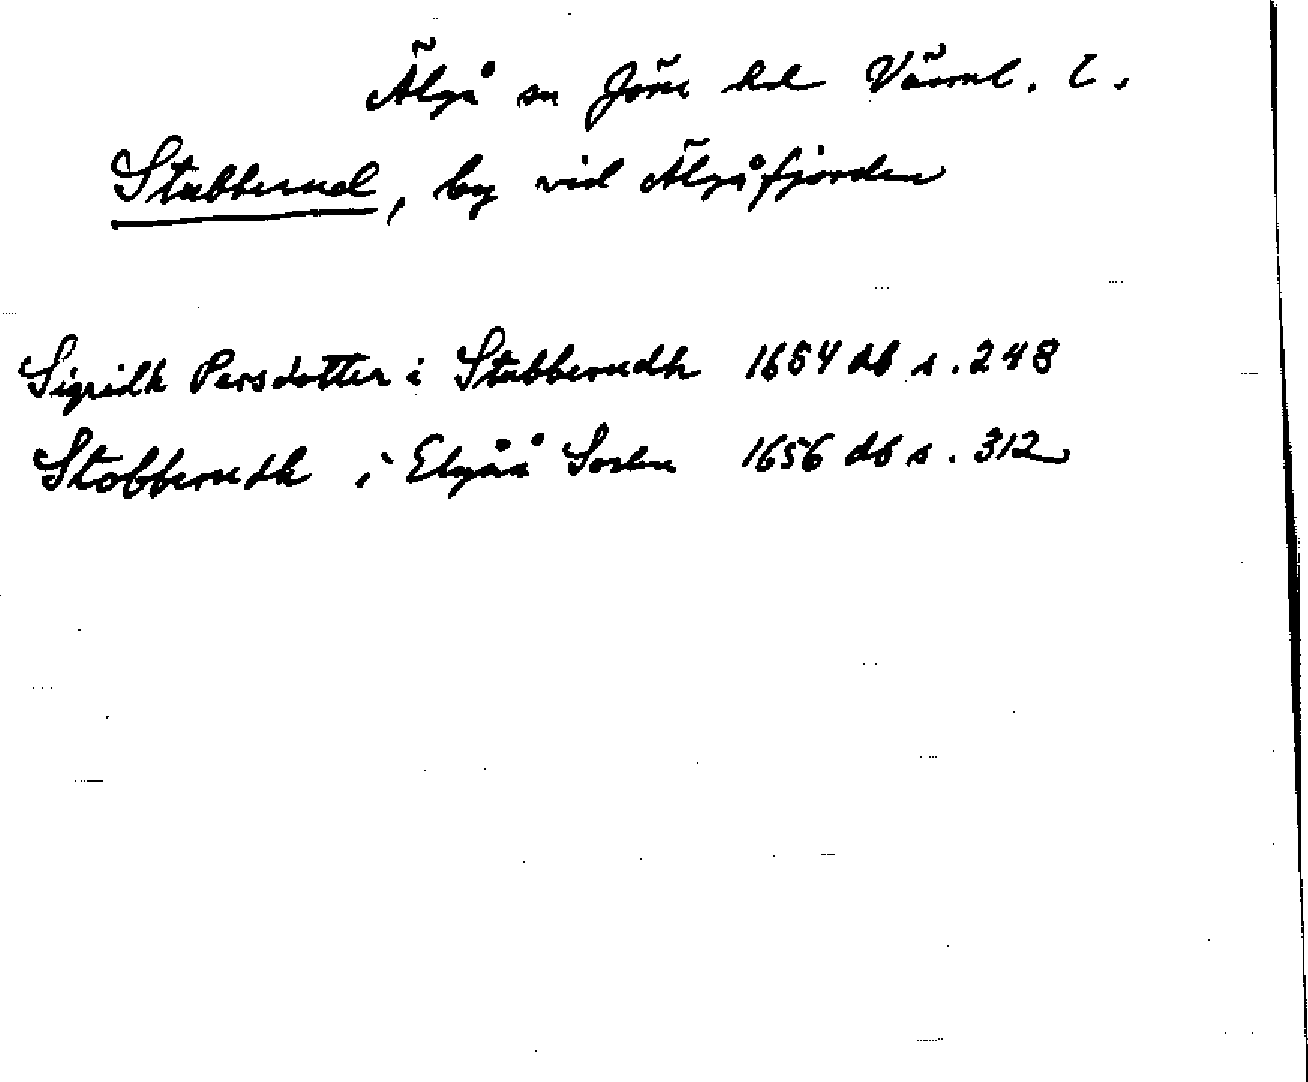 Älgå sn Jösse hd Värml. l.
Stubberud, by vid Älgåfjorden
Sigridh Persdotter i Stubberudh 1654 db s. 248
Stobberudh i Elgåå Sochn 1656 db s. 312